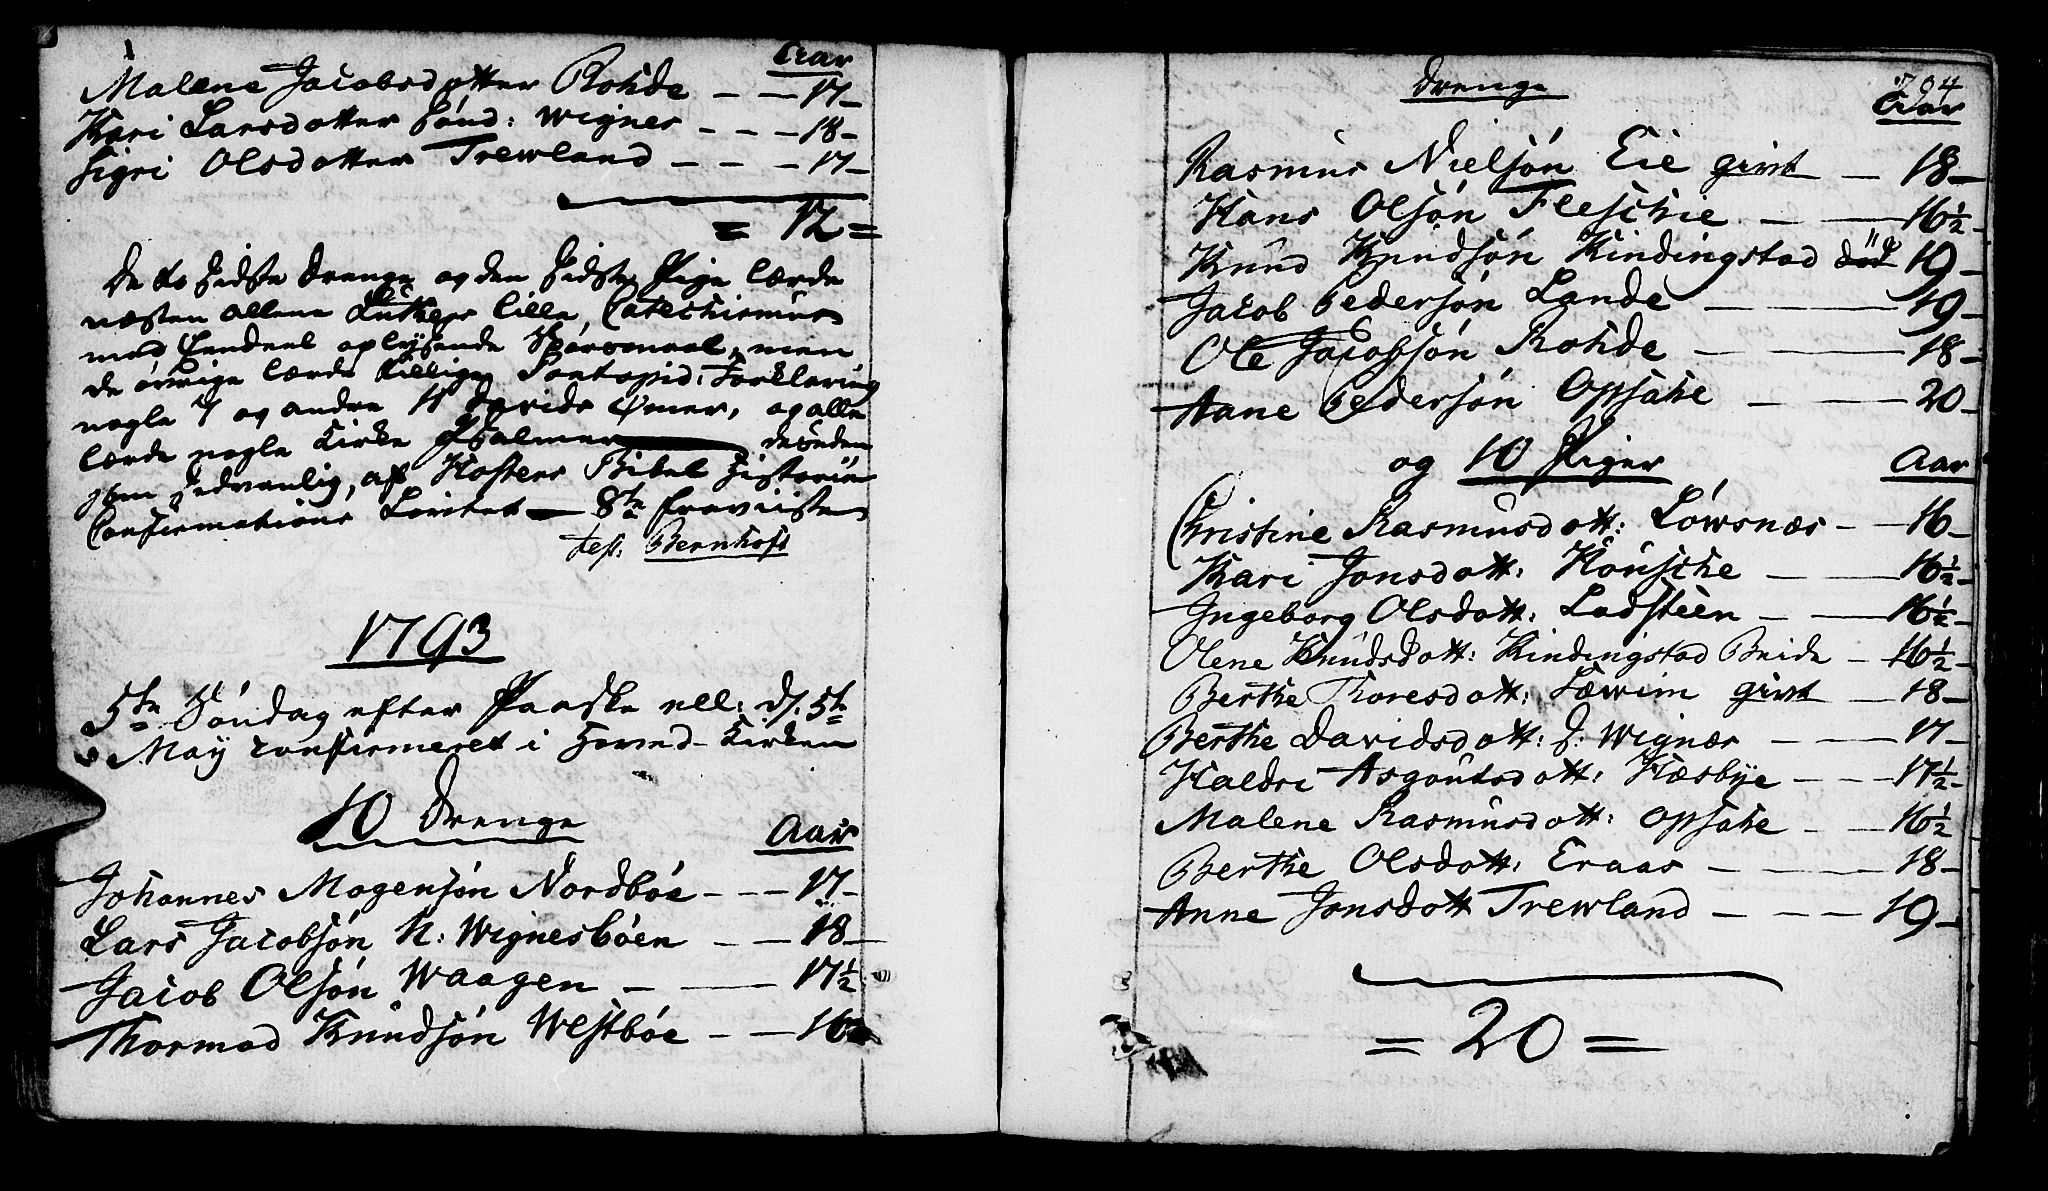 Aar
Malene Jacobsdotter Rohde - - 17 -
Kari Larsdotter Sønd: Wignes - - - 18 -
Sigri Olsdotter Trewland - - - 17 -
= 12 =
De to sidste Drenge og den sidste Pige lærde
næsten allene Luthers lille Catechismus
med Eendeel oplysende Spørsmaal, men
de øvrige lærde tillige Pontopid: Forklaring
nogle 7 og andre 11 Davids Psalmer, og alle
lærde nogle Kirke Psalmer desuden
som sedvanlig, af Hofters Bibel Historie
Confirmations Løvtet - 8te
test: Bernhoft
1793
5te Søndag efter Paaske ell: d. 5te
May confirmeret i Hoved-Kirken
10 Drenge Aar
Johannes Mogensøn Nordbøe - - - 17 -
Lars Jacobsøn N: Wignesbøen - - 18 -
Jacob Olsøn Waagen - - 17½
Thormod Knudsøn Westbøe - - 16
704
Drenge Aar
Rasmus Nielsøn Eie givt - 18 -
Hans Olsøn Fleschie - - 16½ -
Knud Knudsøn Kindingstad død 19 -
Jacob Pedersøn Lande - 19 -
Ole Jacobsøn Rohde - - 18 -
Aane Pedersøn Opsahe - - 20 -
og 10 Piger Aar
Christine Rasmusdott: Løwsnæs - - 16 -
Kari Jonsdott: Housche - - 16½ -
Ingeborg Olsdott: Ladsteen - - 16½ -
Olene Knudsdott: Kindingstad Beide - 16½ -
Berthe Thoresdott: Fæwim givt - 18 -
Berthe Davidsdott: S: Wignæs - - - 17 -
Haldri Asgoutsdott: Hæsbye - - - 17½ -
Malene Rasmusdott: Opsahe - - 16½
Berthe Olsdott: Eraas - - 18 -
Anne Jonsdott Trewland - - - 19 -
= 20 =